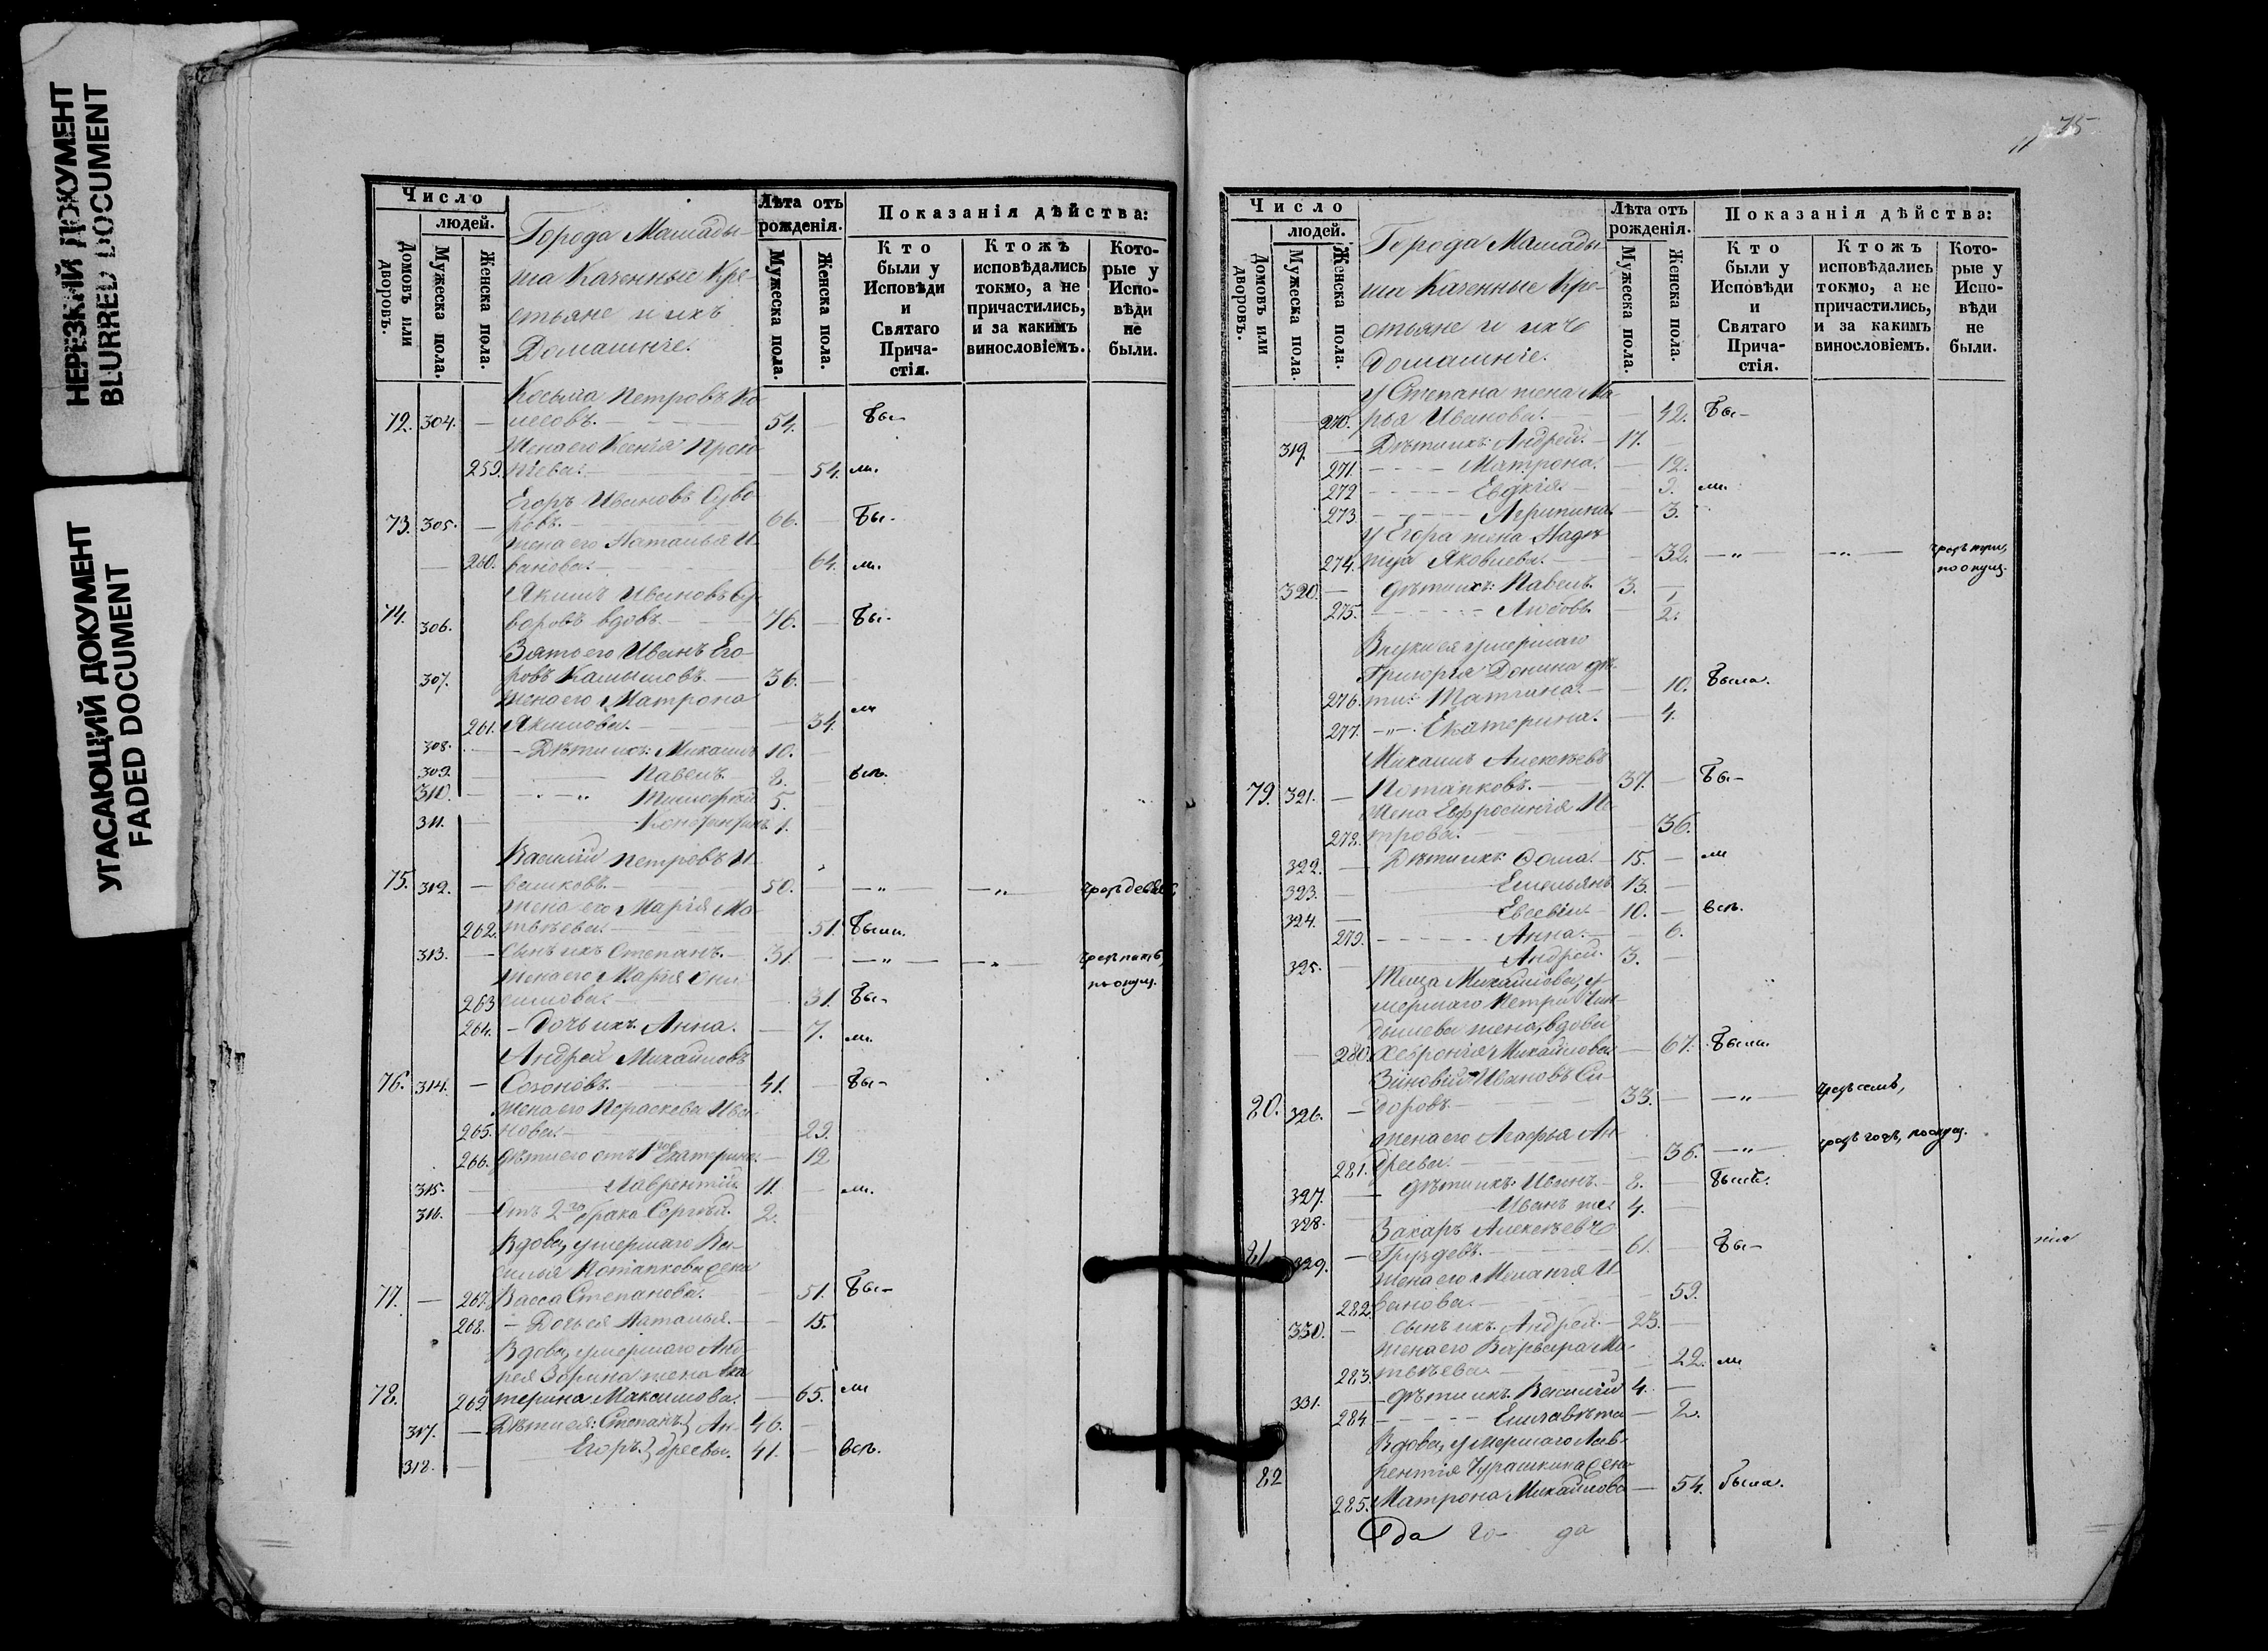 НЕРЕЗКИЙ ДОКУМЕНТ
BLURRED DOCUMENT
УГАСАЮЩИЙ ДОКУМЕНТ
FADED DOCUMENT
Число
людей.
Домовъ или дворовъ.
Мужеска пола.
Женска пола.
Города Мамады-
ша Казенные Кре-
стьяне и ихъ
Домашніе.
Лѣта отъ
рожденія.
Мужеска пола.
Женска пола.
Показанія дѣйства:
Кто
были у
Исповѣди
и
Святаго
Прича-
стія.
Ктожъ
исповѣдались
токмо, а не
причастились,
и за какимъ
винословіемъ.
Кото-
рые у
Испо-
вѣди
не
были.
Косьма Петровъ
72. 304. — 54. — Бы-
Жена его Ксенія Проко-
259. піева. — 54. ли.
Егоръ Ивановъ Суво-
73. 305. — ровъ. 66. — Бы-
жена его Наталья И-
— 260. ванова. 64. ли.
Якимъ Ивановъ Су-
74. 306. воровъ вдовъ. 76. — Бы-
Зять его Иванъ Его-
307. ровъ Камышовъ. — 36. —
жена его Матрона
261. Якимова. — 34. ли
308. — Дѣти ихъ: Михаилъ 10. —
309. — Павелъ. 8. — всѣ.
310. — Тимофей 5. —
311. — Константинъ 1. —
Василій Петровъ И-
75. 312. — вашковъ. 50. — „ — — „ —
жена его Марія Ма-
262. твѣева. 51. Были.
313. — Сынъ ихъ Степанъ. — 31. — — „ — — „ —
жена его Марія Они-
263 симова. — 31. Бы-
по опущ.
264. — Дочь ихъ Анна. — 7. ли.
Андрей Михайловъ
76. 314. — Созоновъ. 41. — Бы-
жена его Параскева Ива-
265. нова. 29.
266. Дѣти его отъ 1го Екатерина. — 12
315. — Лаврентій. 11. — ли.
316. — Отъ 2го брака Сергѣй. 2.
Вдова, умершаго Ва-
силья Потапкова жена
77. — 267. Васса Степанова. — 51. Бы-
268. — Дочь ея Наталья. — 15.
Вдова, умершаго Анд-
рея Зорина жена Ека-
78. 269. терина Максимова. — 65. ли
317. — Дѣти ея: Степанъ.} Ан- 46. —
318. — Егоръ.} дреевы. 41. — всѣ.
75
Число
людей.
Домовъ или дворовъ.
Мужеска пола.
Женска пола.
Города Мамады-
ша Казенные Кре-
стьяне и ихъ
домашніе.
Лѣта отъ
рожденія.
Мужеска пола.
Женска пола.
Показанія дѣйства:
Кто
были у
Исповѣди
и
Святаго
Прича-
стія.
Ктожъ
исповѣдались
токмо, а не
причастились,
и за какимъ
винословіемъ.
Кото-
рые у
Испо-
вѣди
не
были.
У Степана жена Ма-
270. рья Иванова. — 42. Бы-
319. — Дѣти ихъ: Андрей. — 17. —
271. — Матрона. — 12.
272 — Евдкія. — 9. ли.
273. — Агрипина — 3.
У Егора жена Надѣ-
274. жда Яковлева. — 32. — „ — — „ —
по опущ.
320. — Дѣти ихъ: Павелъ. 3. —
275. — Любовь. — 2.
Внуки ея умершаго
Григорія Донина дѣ-
276. ти: Татіана. — 10. Была.
277. — „ — Екатерина. — 4.
Михаилъ Алексѣевъ
79. 321. — Потапковъ. — 37. — Бы-
Жена Евфросинія Пе-
278. трова. — 36.
322. — Дѣти ихъ: Ѳома. — 15. — ли
323. — Емельянъ 13. —
324. — Евсевій. — 10. — всѣ.
279. — Анна. — 6.
325. — Андрей. 3. —
Теща Михайлова, у-
мершаго Петра
жена, вдова
280. Хевронія Михайлова — 67. Были.
Зиновій Ивановъ Си-
80. 326. — доровъ. 33. — — „ —
жена его Агафья Ан-
281. дреева. — 36. — „ —
327. — Дѣти ихъ: Иванъ. — 8. — Были.
328. — Иванъ же 4. —
Захаръ Алексѣевъ
81 329. — Груздевъ. 61. — Бы-
Жена его Меланія И-
282 ванова. 59.
330. — Сынъ ихъ Андрей. — 23. —
жена его Варвара Ма-
283. твѣева. 22. ли
331. — Дѣти ихъ Василій 4. —
284 — Елисавѣта — 2.
Вдова, умершаго Лав-
рентія Чурашкина жена
82 285. Матрона Михайлова — 54. была.